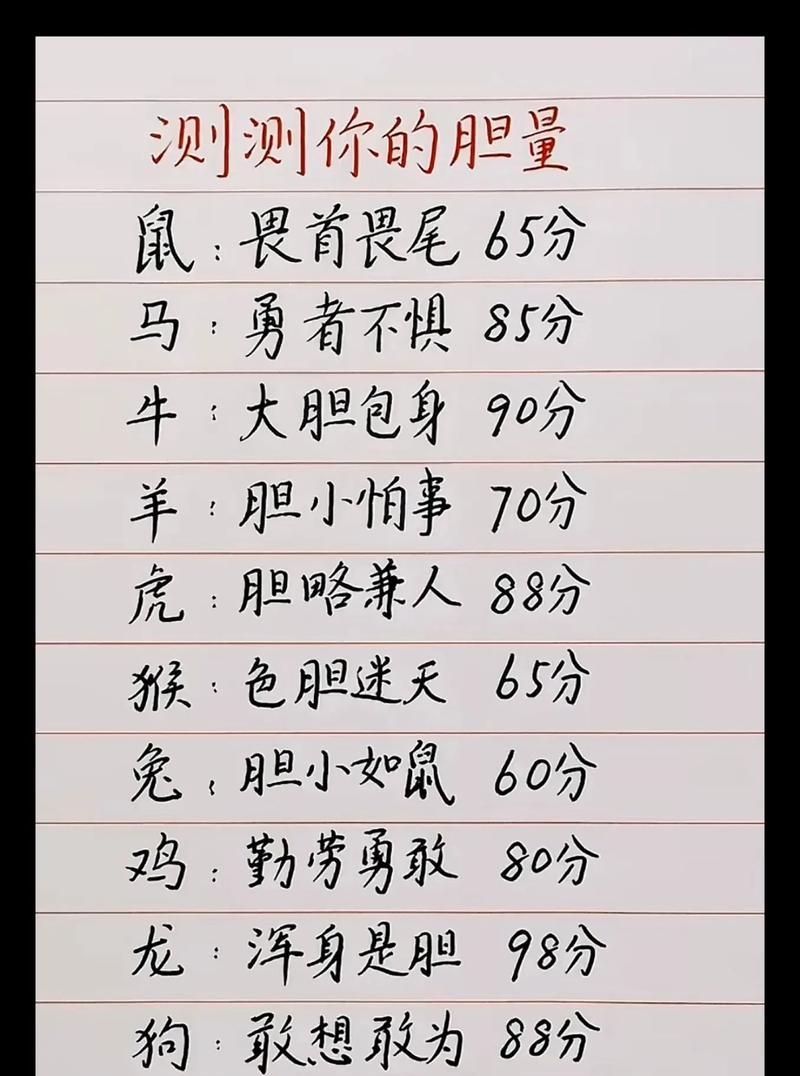 测测你的胆量
鼠：畏首畏尾 65分
马：勇者不惧 85分
牛：大胆包身 90分
羊：胆小怕事 70分
虎：胆略兼人 88分
猴：色胆迷天 65分
兔：胆小如鼠 60分
鸡：勤劳勇敢 80分
龙：浑身是胆 98分
狗：敢想敢为 88分